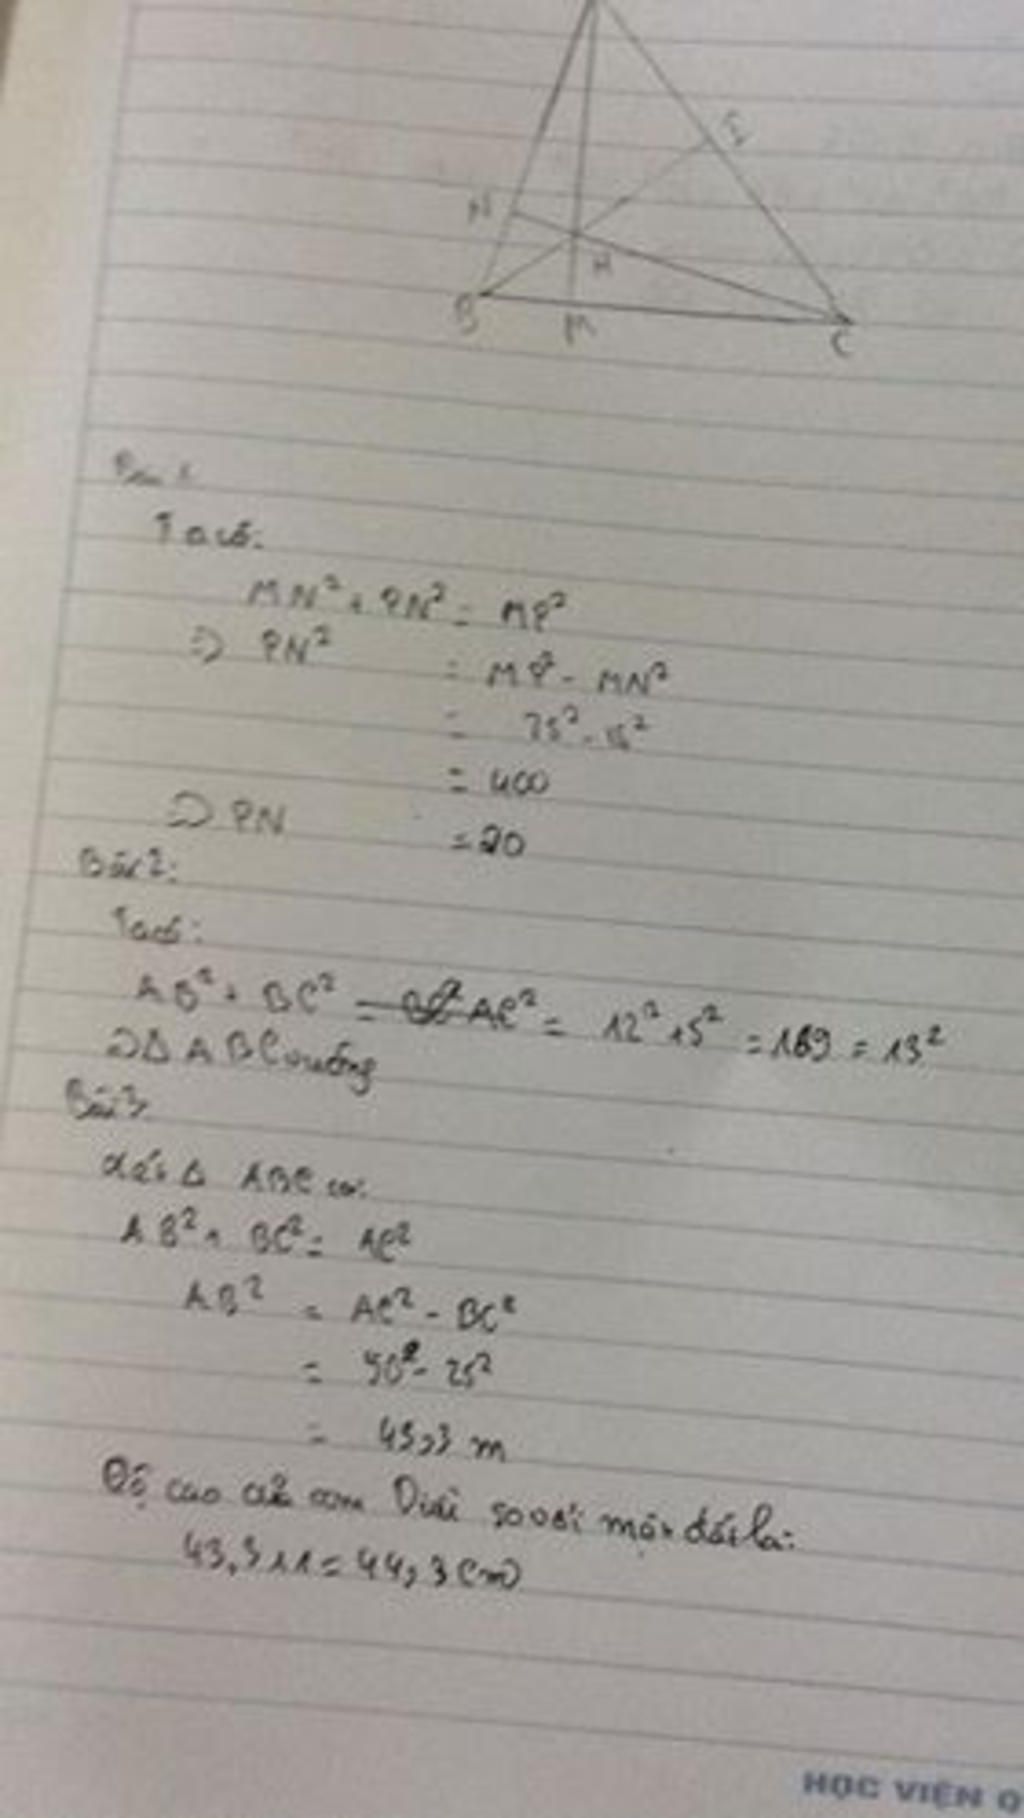 N
H
B
M
C
Bài 1
Ta có:
MN² + PN² = MP²
⇒ PN² = MP² - MN²
= 25² - 15²
= 400
⇒ PN = 20
Bài 2:
Ta có:
AB² + BC² = AC² = 12² + 5² = 169 = 13²
⇒ Δ ABC vuông
Bài 3
Xét Δ ABC có:
AB² + BC² = AC²
AB² = AC² - BC²
= 50² - 25²
= 43,3 m
Độ cao của con Diều so với mặt đất là:
43,3 + 1 = 44,3 (m)
HỌC VIỆN